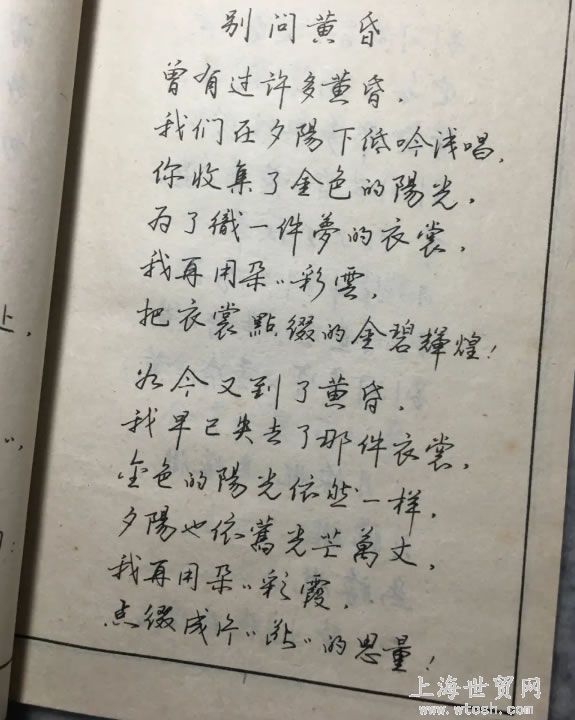 别问黄昏
曾有过许多黄昏，
我们在夕陽下低吟浅唱，
你收集了金色的陽光，
为了織一件夢的衣裳，
我再用朵〃彩雲，
把衣裳點缀的金碧輝煌！
如今又到了黄昏，
我早已失去了那件衣裳，
金色的陽光依然一样，
夕陽也依舊光芒萬丈，
我再用朵〃彩霞，
点缀成片〃點〃的思量！
上，
〃，
：
上海世贸网
www.wtosh.com